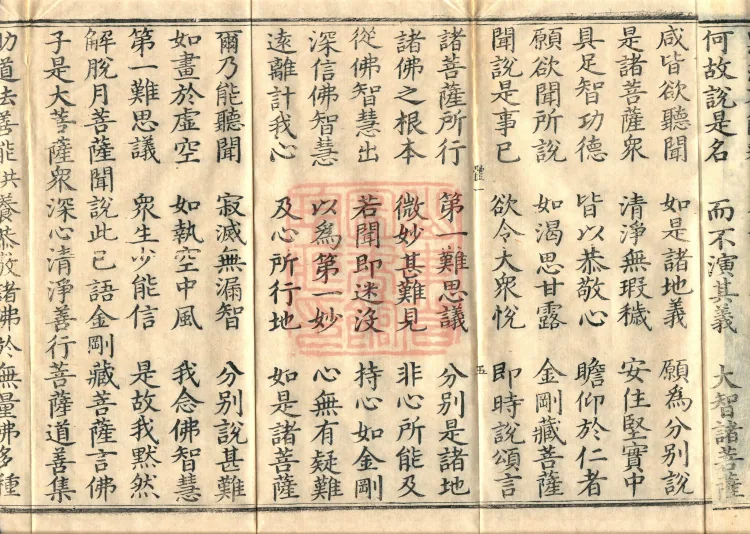 何故說是名 而不演其義 大智諸菩薩
咸皆欲聽聞 如是諸地義 願為分別說
是諸菩薩眾 清淨無瑕穢 安住堅實中
具足智功德 皆以恭敬心 瞻仰於仁者
願欲聞所說 如渴思甘露 金剛藏菩薩
聞說是事已 欲令大眾悅 即時說頌言
五
諸菩薩所行 第一難思議 分別是諸地
諸佛之根本 微妙甚難見 非心所能及
從佛智慧出 若聞即迷沒 持心如金剛
深信佛智慧 以為第一妙 心無有疑難
遠離計我心 及心所行地 如是諸菩薩
爾乃能聽聞 寂滅無漏智 分別說甚難
如畫於虛空 如執空中風 我念佛智慧
第一難思議 眾生少能信 是故我默然
解脫月菩薩聞說此已語金剛藏菩薩言佛
子是大菩薩眾深心清淨善行菩薩道善集
助道法善能供養恭敬諸佛於無量佛多種